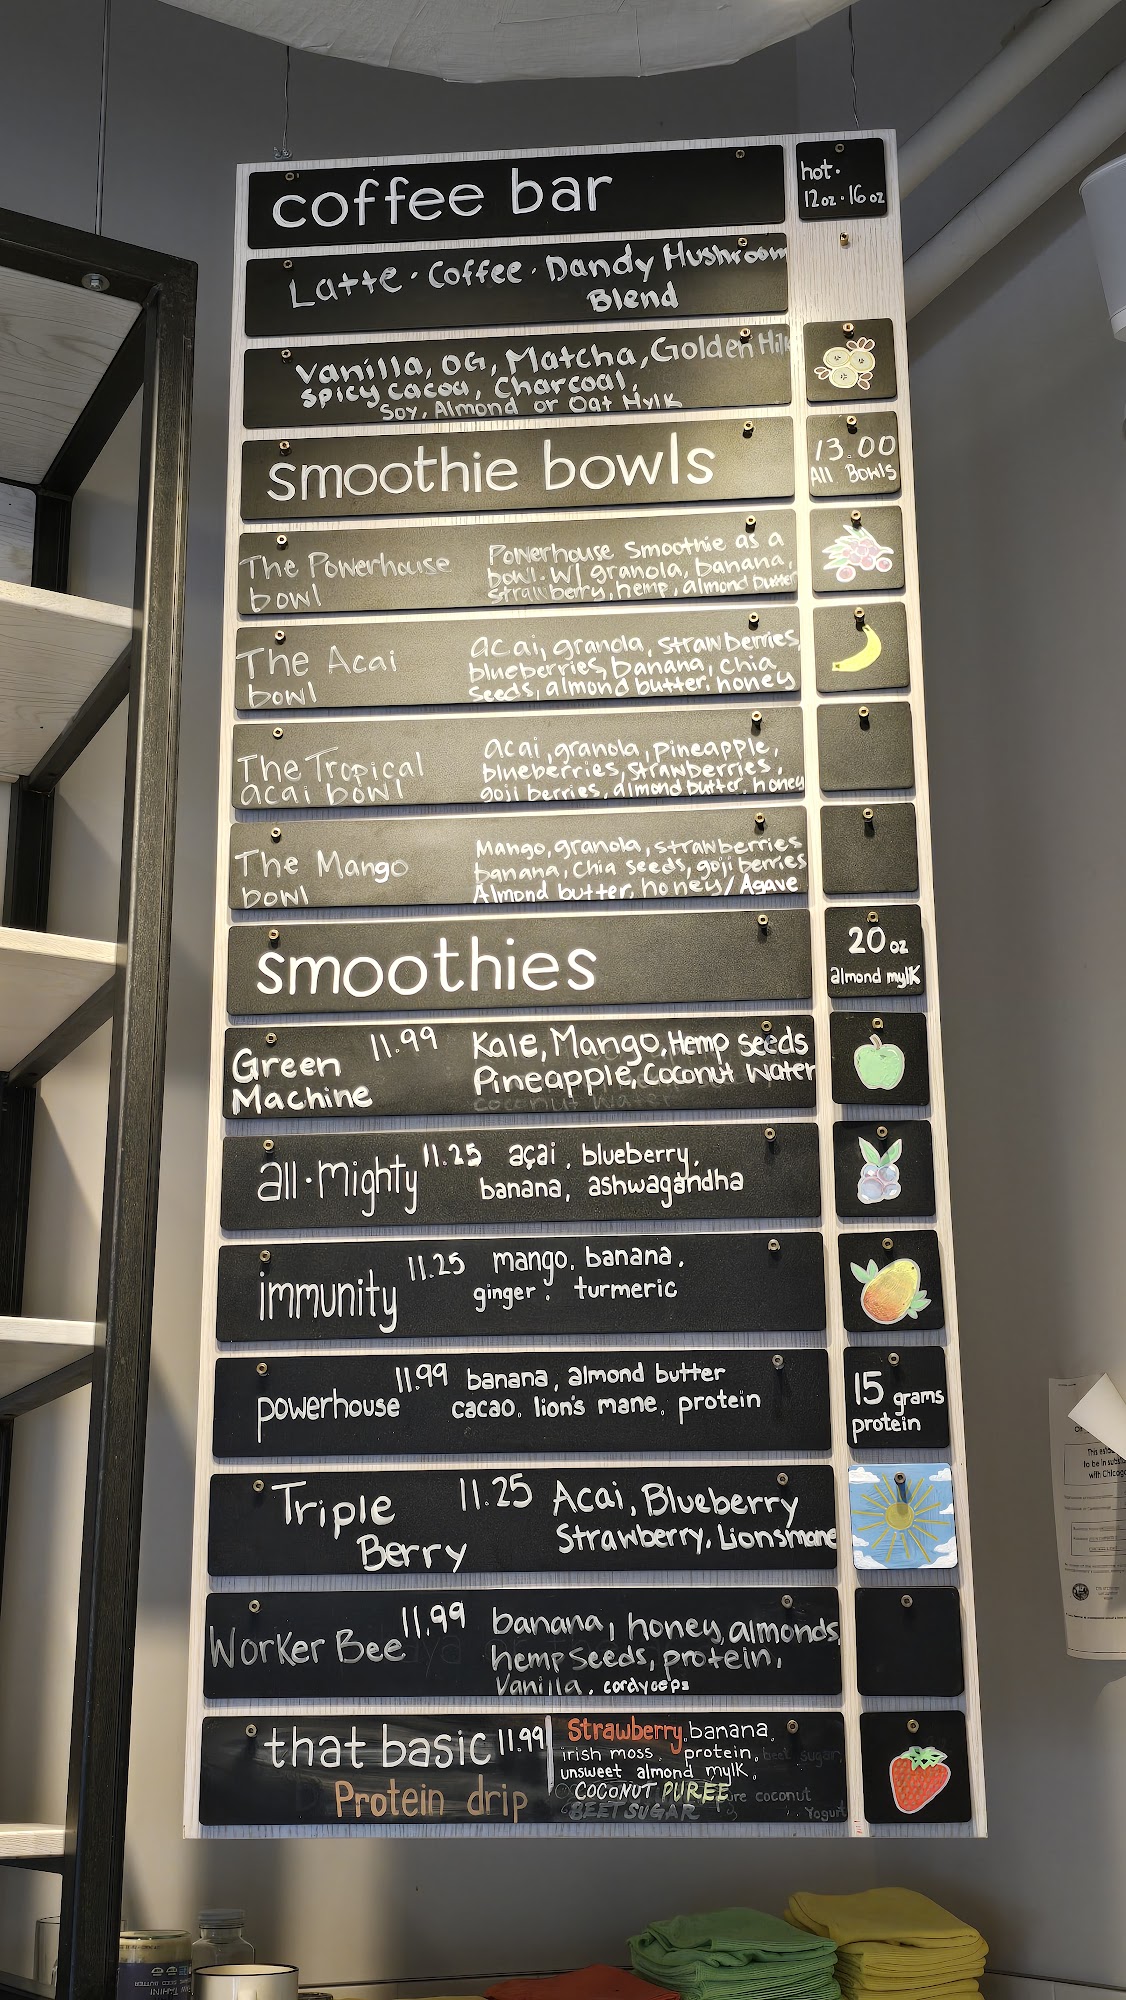 coffee bar
hot.
12oz · 16oz
Latte · Coffee · Dandy Mushroom
Blend
Vanilla, OG, Matcha, Golden
Spicy Cacoa, Charcoal,
Soy, Almond or Oat Mylk
smoothie bowls
13.00
All Bowls
The Powerhouse
bowl
Powerhouse Smoothie as a
bowl. w/ granola, banana,
strawberry, hemp, almond butter
The Acai
bowl
acai, granola, strawberries,
blueberries, banana, chia
seeds, almond butter, honey
The Tropical
acai bowl
acai, granola, pineapple,
blueberries, strawberries,
goji berries, almond butter, honey
The Mango
bowl
Mango, granola, strawberries
banana, Chia seeds, goji berries
Almond butter, honey/Agave
smoothies
20 oz
almond mylk
Green
Machine
11.99
Kale, Mango, Hemp seeds
Pineapple, Coconut Water
coconut water
all·mighty
11.25
açai, blueberry,
banana, ashwagandha
immunity
11.25
mango, banana,
ginger, turmeric
powerhouse
11.99
banana, almond butter
cacao, lion's mane, protein
15 grams
protein
Triple
Berry
11.25
Acai, Blueberry
Strawberry, Lionsmane
Worker Bee
11.99
banana, honey, almonds,
hempseeds, protein,
Vanilla, cordyceps
that basic
Protein drip
11.99
Strawberry, banana,
irish moss, protein, beet sugar,
unsweet almond mylk,
COCONUT PUREE pure coconut
BEET SUGAR Yogurt
TAHINI